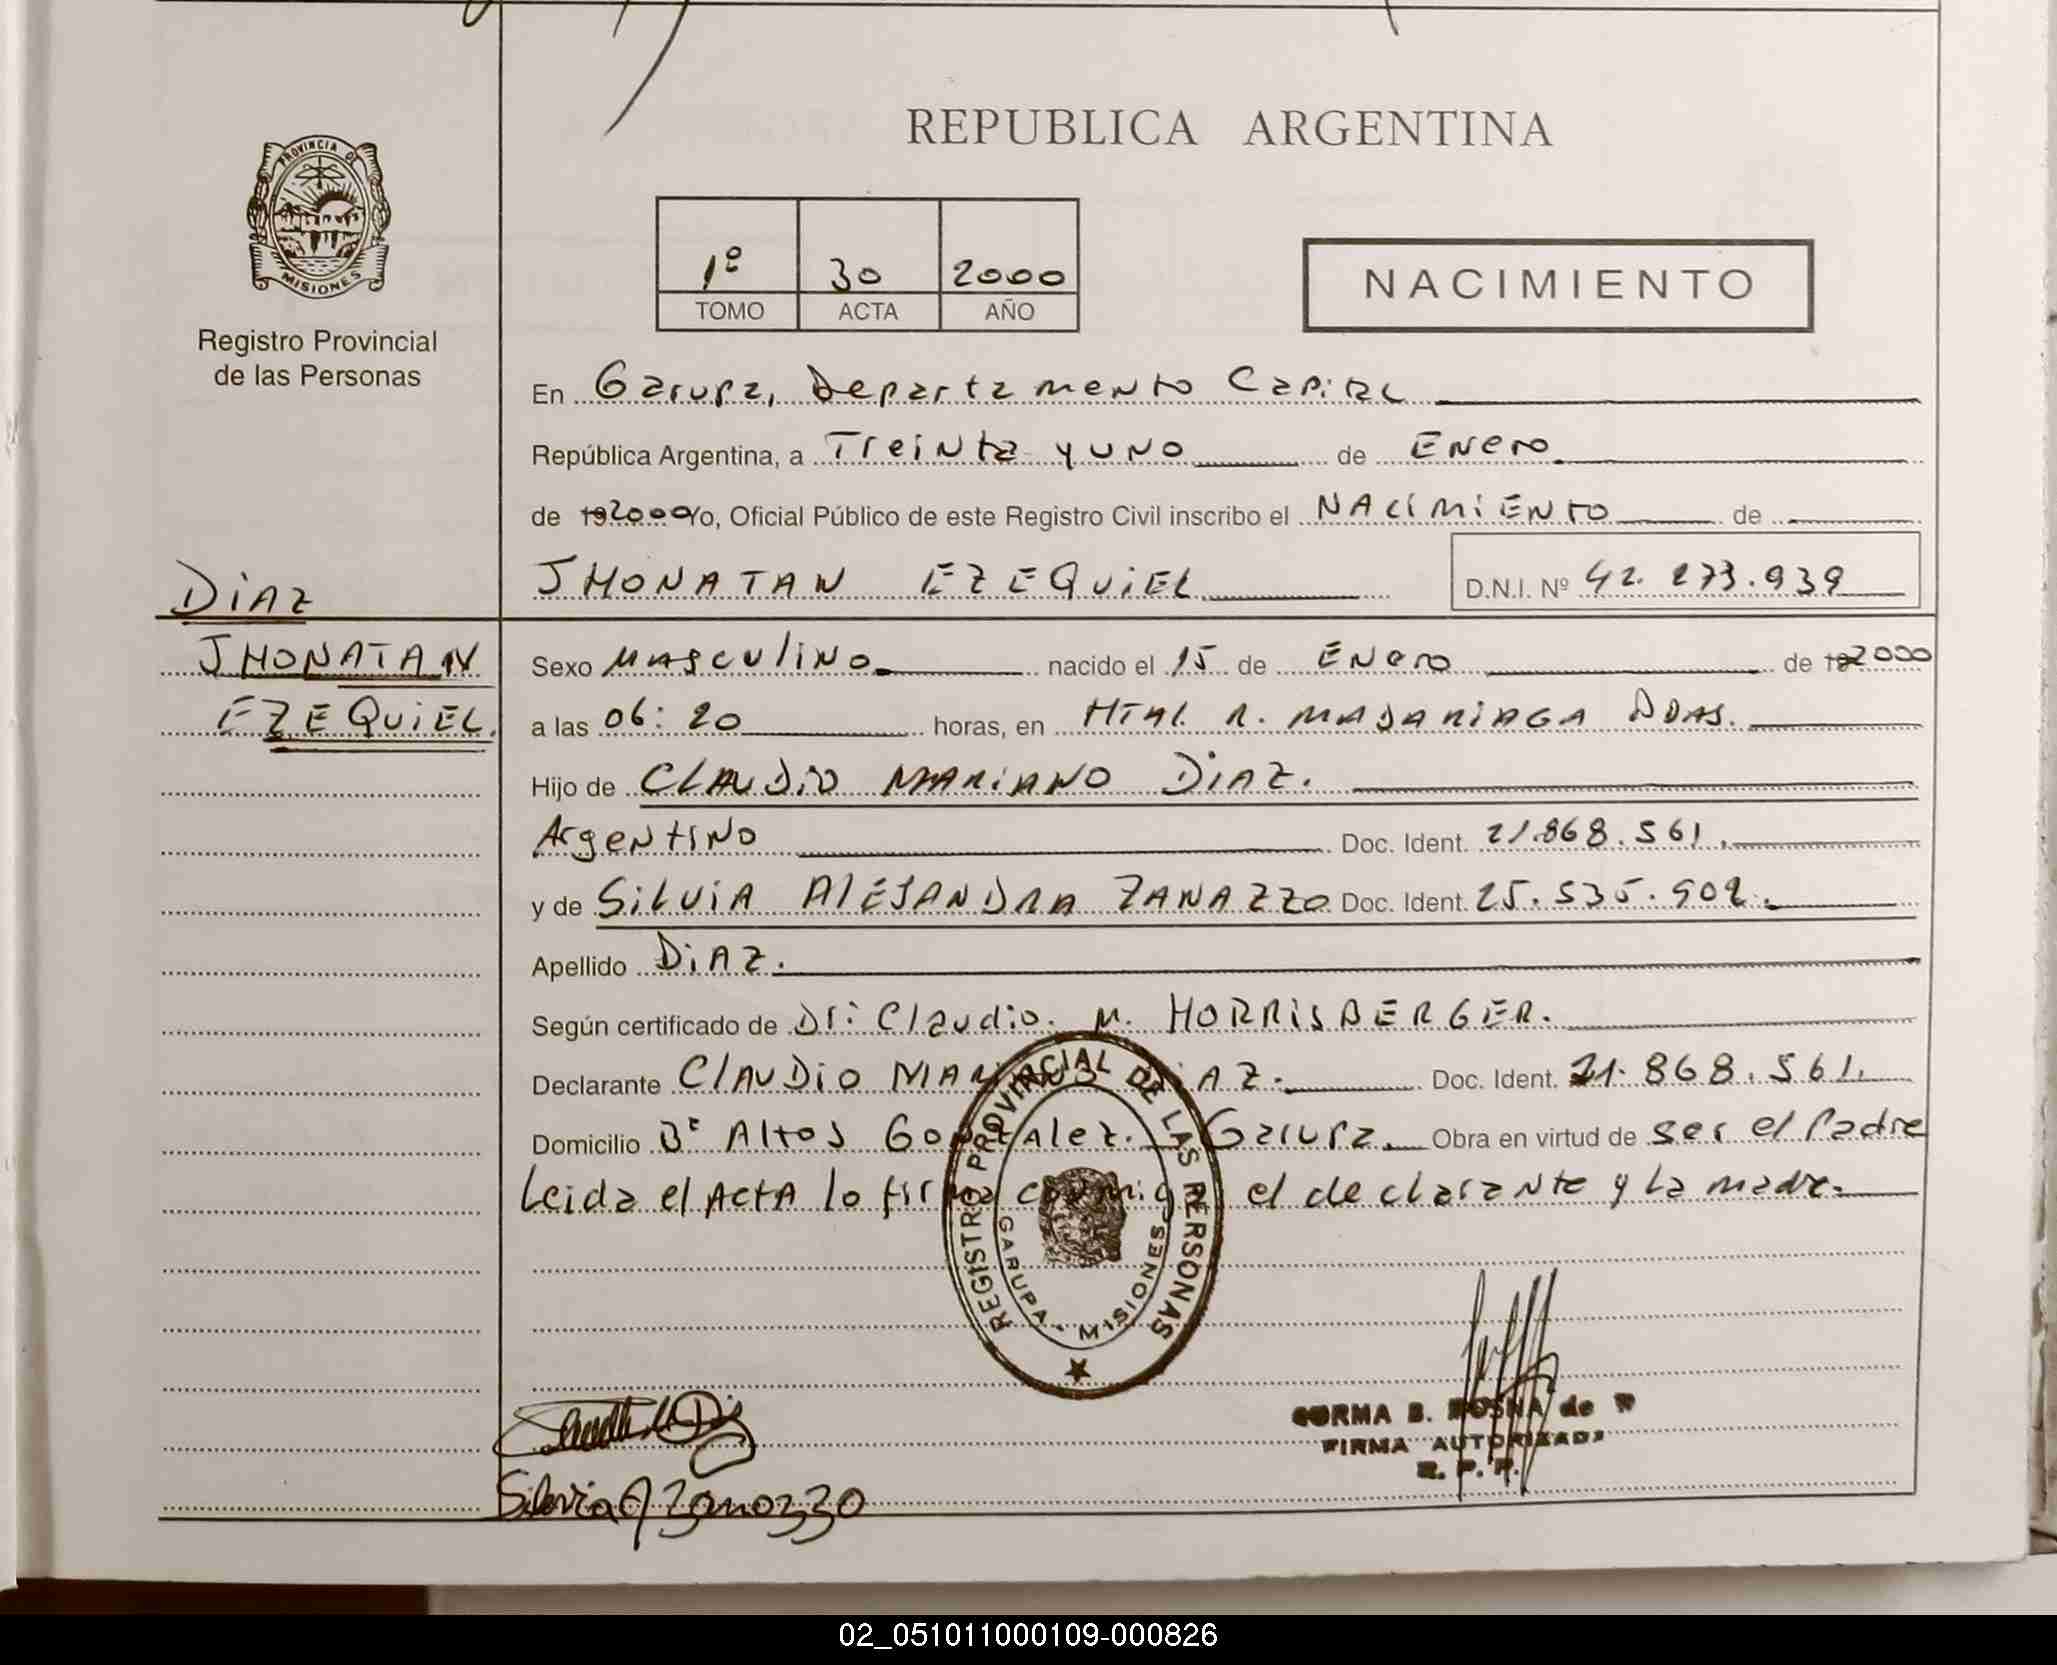 REPUBLICA ARGENTINA
PROVINCIA DE MISIONES
Registro Provincial
de las Personas
1º 30 2000
TOMO ACTA AÑO
NACIMIENTO
En Garupa, Departamento Capital
República Argentina, a Treinta y uno de Enero
de 192000 Yo, Oficial Público de este Registro Civil inscribo el NACIMIENTO de
JHONATAN EZEQUIEL D.N.I. Nº 42.273.939
DIAZ
JHONATAN
EZEQUIEL.
Sexo Masculino nacido el 15 de Enero de 192000
a las 06:20 horas, en Htal. R. MADARIAGA Pdas.
Hijo de CLAUDIO MARIANO DIAZ.
Argentino Doc. Ident. 21.868.561.
y de SILVIA ALEJANDRA ZANAZZO Doc. Ident. 25.535.902.
Apellido DIAZ.
Según certificado de Dr: Claudio. M. HORRISBERGER.
Declarante CLAUDIO MARIANO DIAZ. Doc. Ident. 21.868.561.
Domicilio Bº Altos Gonzalez. Garupa. Obra en virtud de ser el Padre
Leida el ACTA lo firma conmigo el declarante y la madre.
REGISTRO PROVINCIAL DE LAS PERSONAS
GARUPA - MISIONES
B. de
FIRMA AUTORIZADA
R. P. P.
Silvia A Zanazzo
02_051011000109-000826